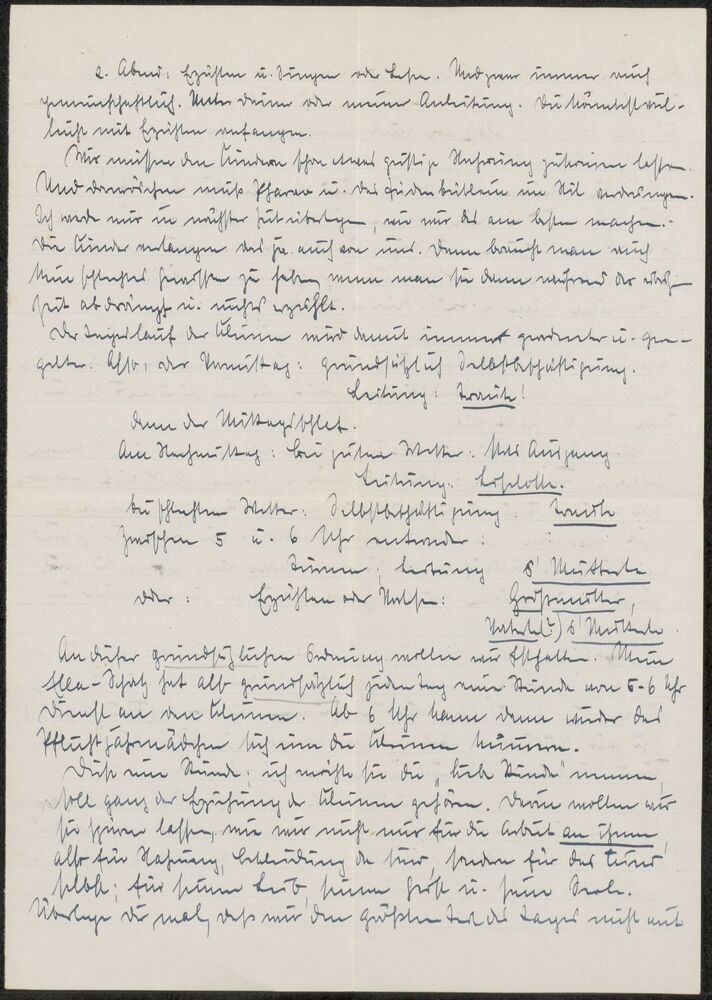 2. Abend: Erzählen u. Singen oder Lesen. Und zwar immer auch
gemeinschaftlich. Unter deiner oder meiner Anleitung. Du könntest viel-
leicht mit Erzählen anfangen.
Wir müssen den Kindern schon etwas geistige Nahrung zukommen lassen.
Und dazwischen muss Pharao u. das im Nil
Ich werde mir in nächster Zeit überlegen, wie wir das am besten machen.-
Die Kinder verlangen das ja auch von uns. Dann braucht man auch
kein schlechtes Gewissen zu haben, wenn man sie dann während der Arbeits-
zeit abdrängt u. nichts erzählt.
Der Tageslauf der Kleinen wird damit immer geordneter u. gere-
gelter. Also, der Vormittag: grundsätzlich Selbstbeschäftigung.
Leitung: Traute!
dann der Mittagsschlaf.
Am Nachmittag: bei gutem Wetter: stets Ausgang
Leitung: Liselotte.
bei schlechtem Wetter: Selbstbeschäftigung. Traute
Zwischen 5 u. 6 Uhr entweder:
Turnen; Leitung s' Mutterle
oder: Erzählen oder Vorlesen: Großmutter,
(?) s' Mutterle.
An dieser grundsätzlichen Ordnung wollen wir festhalten. Mein
-Schatz hat also grundsätzlich jeden Tag eine Stunde von 5-6 Uhr
Dienst an den Kleinen. Ab 6 Uhr kann dann wieder das
Pflichtjahrmädchen sich um die Kleinen kümmern.
Diese eine Stunde; ich möchte sie die „liebe Stunde" nennen,
soll ganz der Erziehung der Kleinen gehören. Darin wollen wir
sie spüren lassen, wie wir nicht nur für die Arbeit an ihnen,
also für Nahrung, Bekleidung da sind, sondern für das Kind
selbst; für seinen Leib, seinen Geist u. seine Seele.
Überlege dir mal, dass wir den größten Teil des Tages nicht mit